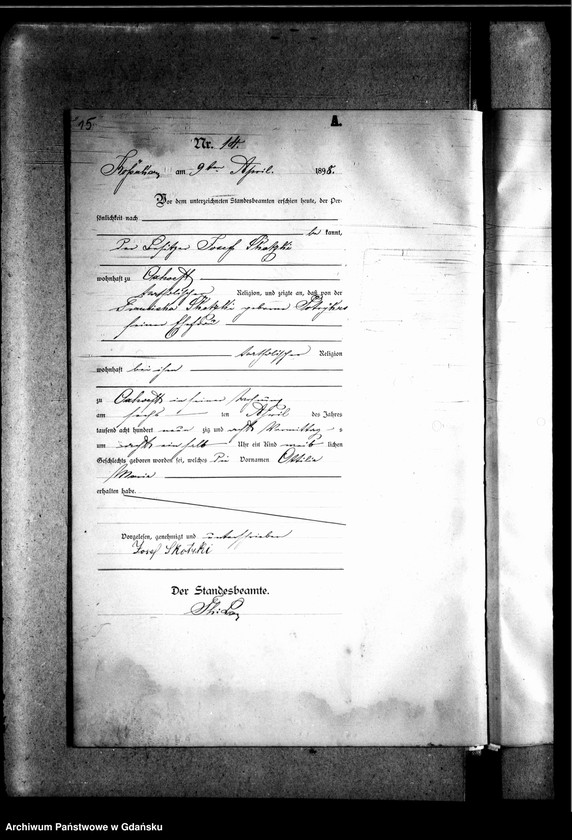 15
A.
Nr. 14.
am 9ten April. 1898.
Vor dem unterzeichneten Standesbeamten erschien heute, der Per-
sönlichkeit nach
be kannt,
Der Besitzer Josef Skotzki
wohnhaft zu Oxhoeft
katholischer Religion, und zeigte an, daß von der
Franziska Skotzki geborene
seiner Ehefrau
katholischer Religion
wohnhaft bei ihm
zu Oxhoeft in seiner Wohnung
am sechsten April des Jahres
tausend acht hundert neun zig und acht Vormittags
um acht einhalb Uhr ein Kind weib lichen
Geschlechts geboren worden sei, welches die Vornamen Ottilie
Maria
erhalten habe.
Vorgelesen, genehmigt und unterschrieben
Josef Skotzki
Der Standesbeamte.
Archiwum Państwowe w Gdańsku